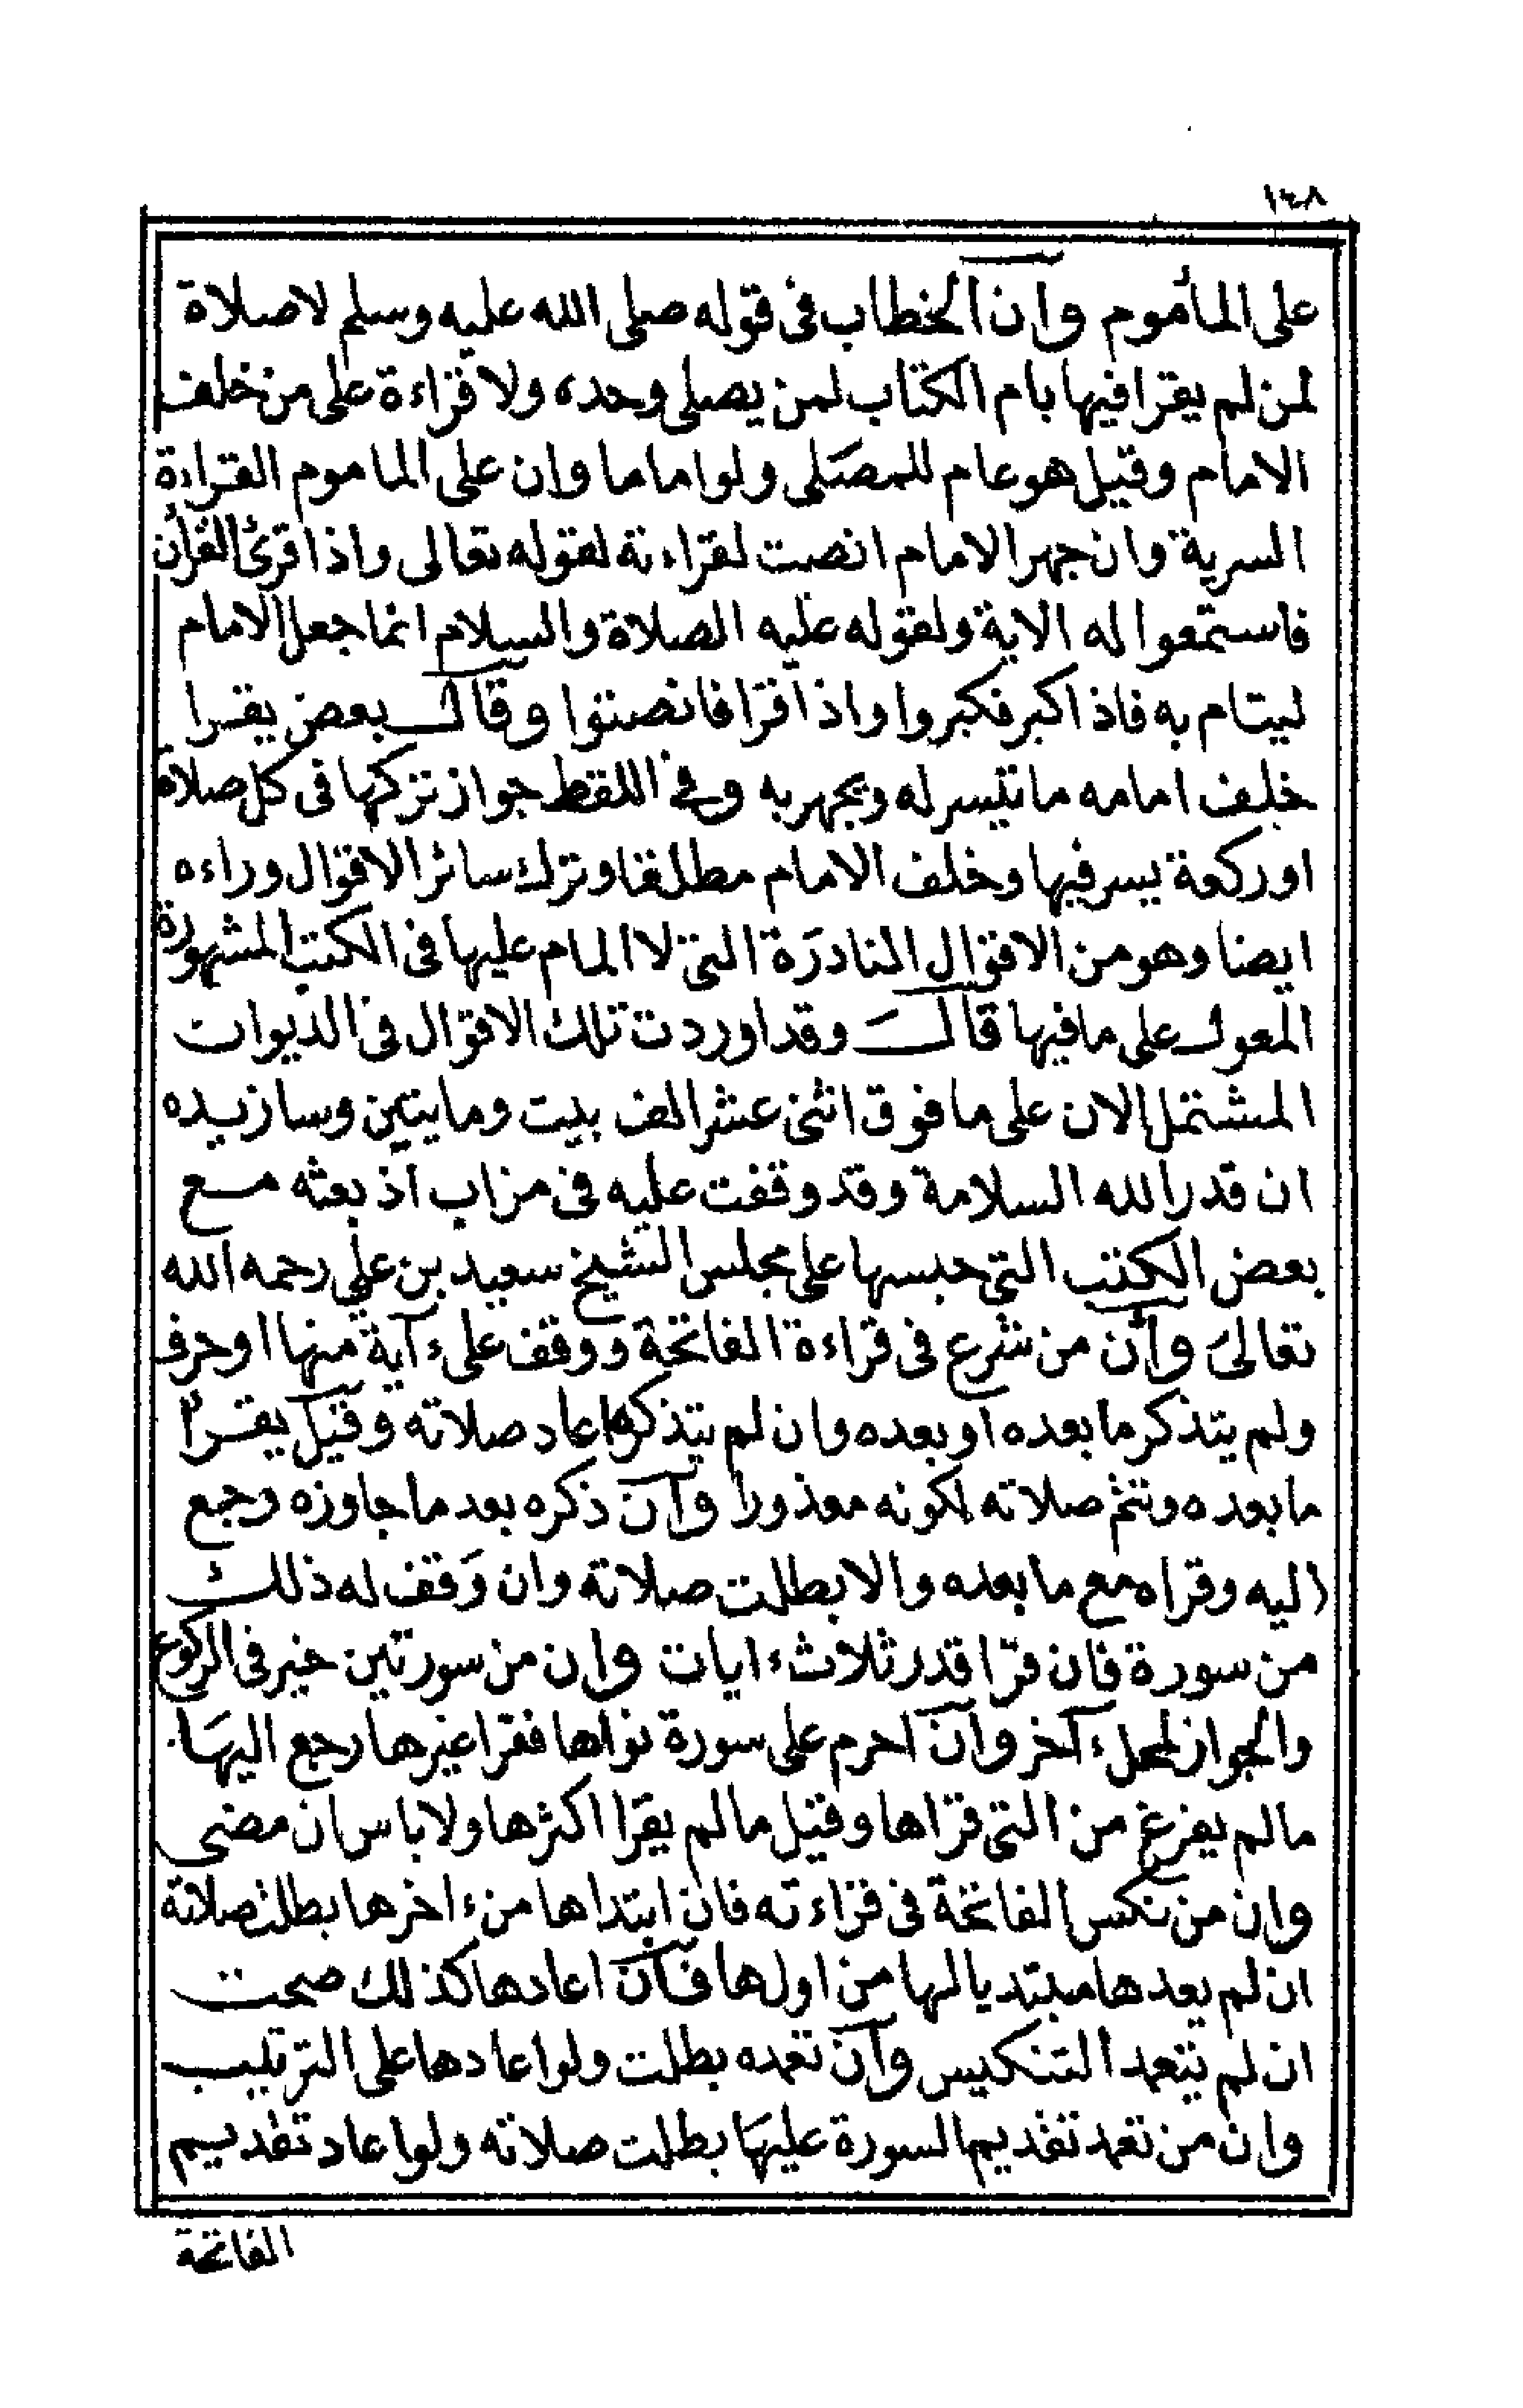 ١٤٨
على المأموم وان الخطاب فى قوله صلى الله عليه وسلم لا صلاة
لمن لم يقرا فيها بام الكتاب لمن يصلى وحده ولا قراءة على من خلف
الامام وقيل هو عام للمصلى ولو اماما وان على الماموم القراءة
السرية وان جهر الامام انصت لقراءته لقوله تعالى واذا قرئ القرأن
فاستمعوا له الاية ولقوله عليه الصلاة والسلام انما جعل الامام
ليتام به فاذا كبر فكبروا واذا قرا فانصتوا وقال بعض يقرا
خلف امامه ما تيسر له ويجهر به وفى اللقط جواز تركها فى كل صلاة
او ركعة يسر فيها وخلف الامام مطلقا وترك سائر الاقوال وراءه
ايضا وهو من الاقوال النادرة التى لا المام عليها فى الكتب المشهورة
المعول على ما فيها قال وقد اوردت تلك الاقوال فى الديوان
المشتمل الان على ما فوق اثنى عشر الف بيت ومايتين وسازيده
ان قدر الله السلامة وقد وقفت عليه فى مزاب اذ بعثه مع
بعض الكتب التى حبسها على مجلس الشيخ سعيد بن على رحمه الله
تعالى وأن من شرع فى قراءة الفاتحة ووقف على ءاية منها او حرف
ولم يتذكر ما بعده او بعده وان لم يتذكره اعاد صلاته وقيل يقرأ
ما بعده وتتم صلاته لكونه معذورا وان ذكره بعد ما جاوزه رجع
اليه وقراه مع ما بعده والا بطلت صلاته وان وقف له ذلك
من سورة فان قرا قدر ثلاث ءايات وان من سورتين خير فى الركوع
والجواز لمحل ءاخر وان احرم على سورة نواها فقرا غيرها رجع اليها
ما لم يفرغ من التى قراها وقيل ما لم يقرا اكثرها ولا باس ان مضى
وان من نكس الفاتحة فى قراءته فان ابتداها من ءاخرها بطلت صلاته
ان لم يعدها مبتديا لها من اولها فان اعادها كذلك صحت
ان لم يتعمد التنكيس وان تعمده بطلت ولو اعادها على الترتيب
وان من تعمد تقديم السورة عليها بطلت صلاته ولو اعاد تقديم
الفاتحة